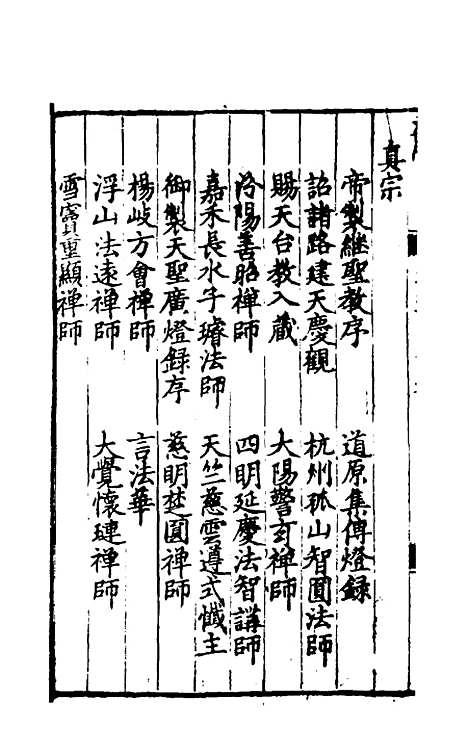 真宗
帝製継聖教序
道原集傳燈錄
詔諸路建天慶觀
杭州孤山智圓法師
賜天台教入藏
大陽警玄禅師
汾陽善昭禅師
四明延慶法智講師
嘉禾長水子璿法師
天竺慈雲遵式懺主
御製天聖廣燈録序
慈明楚圓禅師
楊岐方會禅師
言法華
浮山法遠禅師
大覺懷璉禅師
雪竇重顯禅師